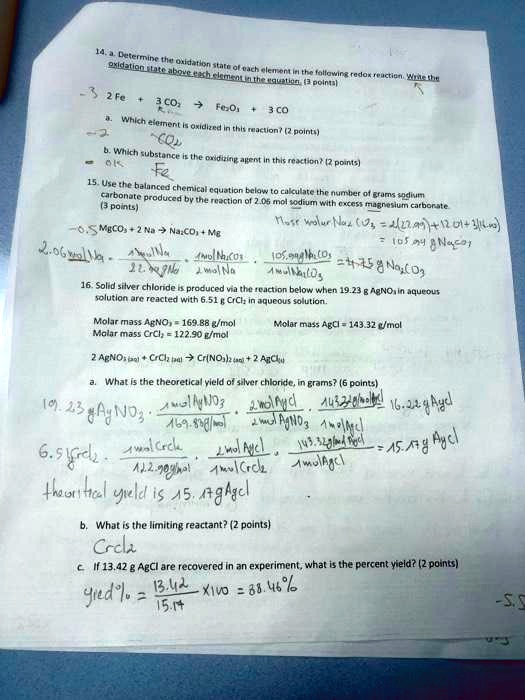 14. a. Determine the oxidation state of each element in the following redox reaction. Write the
oxidation state above each element in the equation. (3 points)
-3 2 Fe + 3 CO₂ → Fe₂O₃ + 3 CO
a. Which element is oxidized in this reaction? (2 points)
-2 CO₂
b. Which substance is the oxidizing agent in this reaction? (2 points)
- ok Fe
15. Use the balanced chemical equation below to calculate the number of grams sodium
carbonate produced by the reaction of 2.06 mol sodium with excess magnesium carbonate.
(3 points)
= 105.99 g Na₂CO₃
-0.5 MgCO₃ + 2 Na → Na₂CO₃ + Mg
2.06 mol Na · 1 mol Na / 22.99g Na · 1 mol Na₂CO₃ / 2 mol Na · 105.99g Na₂CO₃ / 1 mol Na₂CO₃ = g Na₂CO₃
16. Solid silver chloride is produced via the reaction below when 19.23 g AgNO₃ in aqueous
solution are reacted with 6.51 g CrCl₂ in aqueous solution.
Molar mass AgNO₃ = 169.88 g/mol Molar mass AgCl = 143.32 g/mol
Molar mass CrCl₂ = 122.90 g/mol
2 AgNO₃ (aq) + CrCl₂ (aq) → Cr(NO₃)₂ (aq) + 2 AgCl(s)
a. What is the theoretical yield of silver chloride, in grams? (6 points)
19.23 g AgNO₃ · 1 mol AgNO₃ / 169.88g/mol · 2 mol AgCl / 2 mol AgNO₃ · 143.32g/mol AgCl / 1 mol AgCl 16.22 g AgCl
6.51 g CrCl₂ · 1 mol CrCl₂ / 122.90g/mol · 2 mol AgCl / 1 mol CrCl₂ · 143.32g/mol AgCl / 1 mol AgCl = 15.17 g AgCl
theoritical yield is 15.17 g AgCl
b. What is the limiting reactant? (2 points)
CrCl₂
c. If 13.42 g AgCl are recovered in an experiment, what is the percent yield? (2 points)
yied % = 13.42 / 15.17 x100 = 88.46%